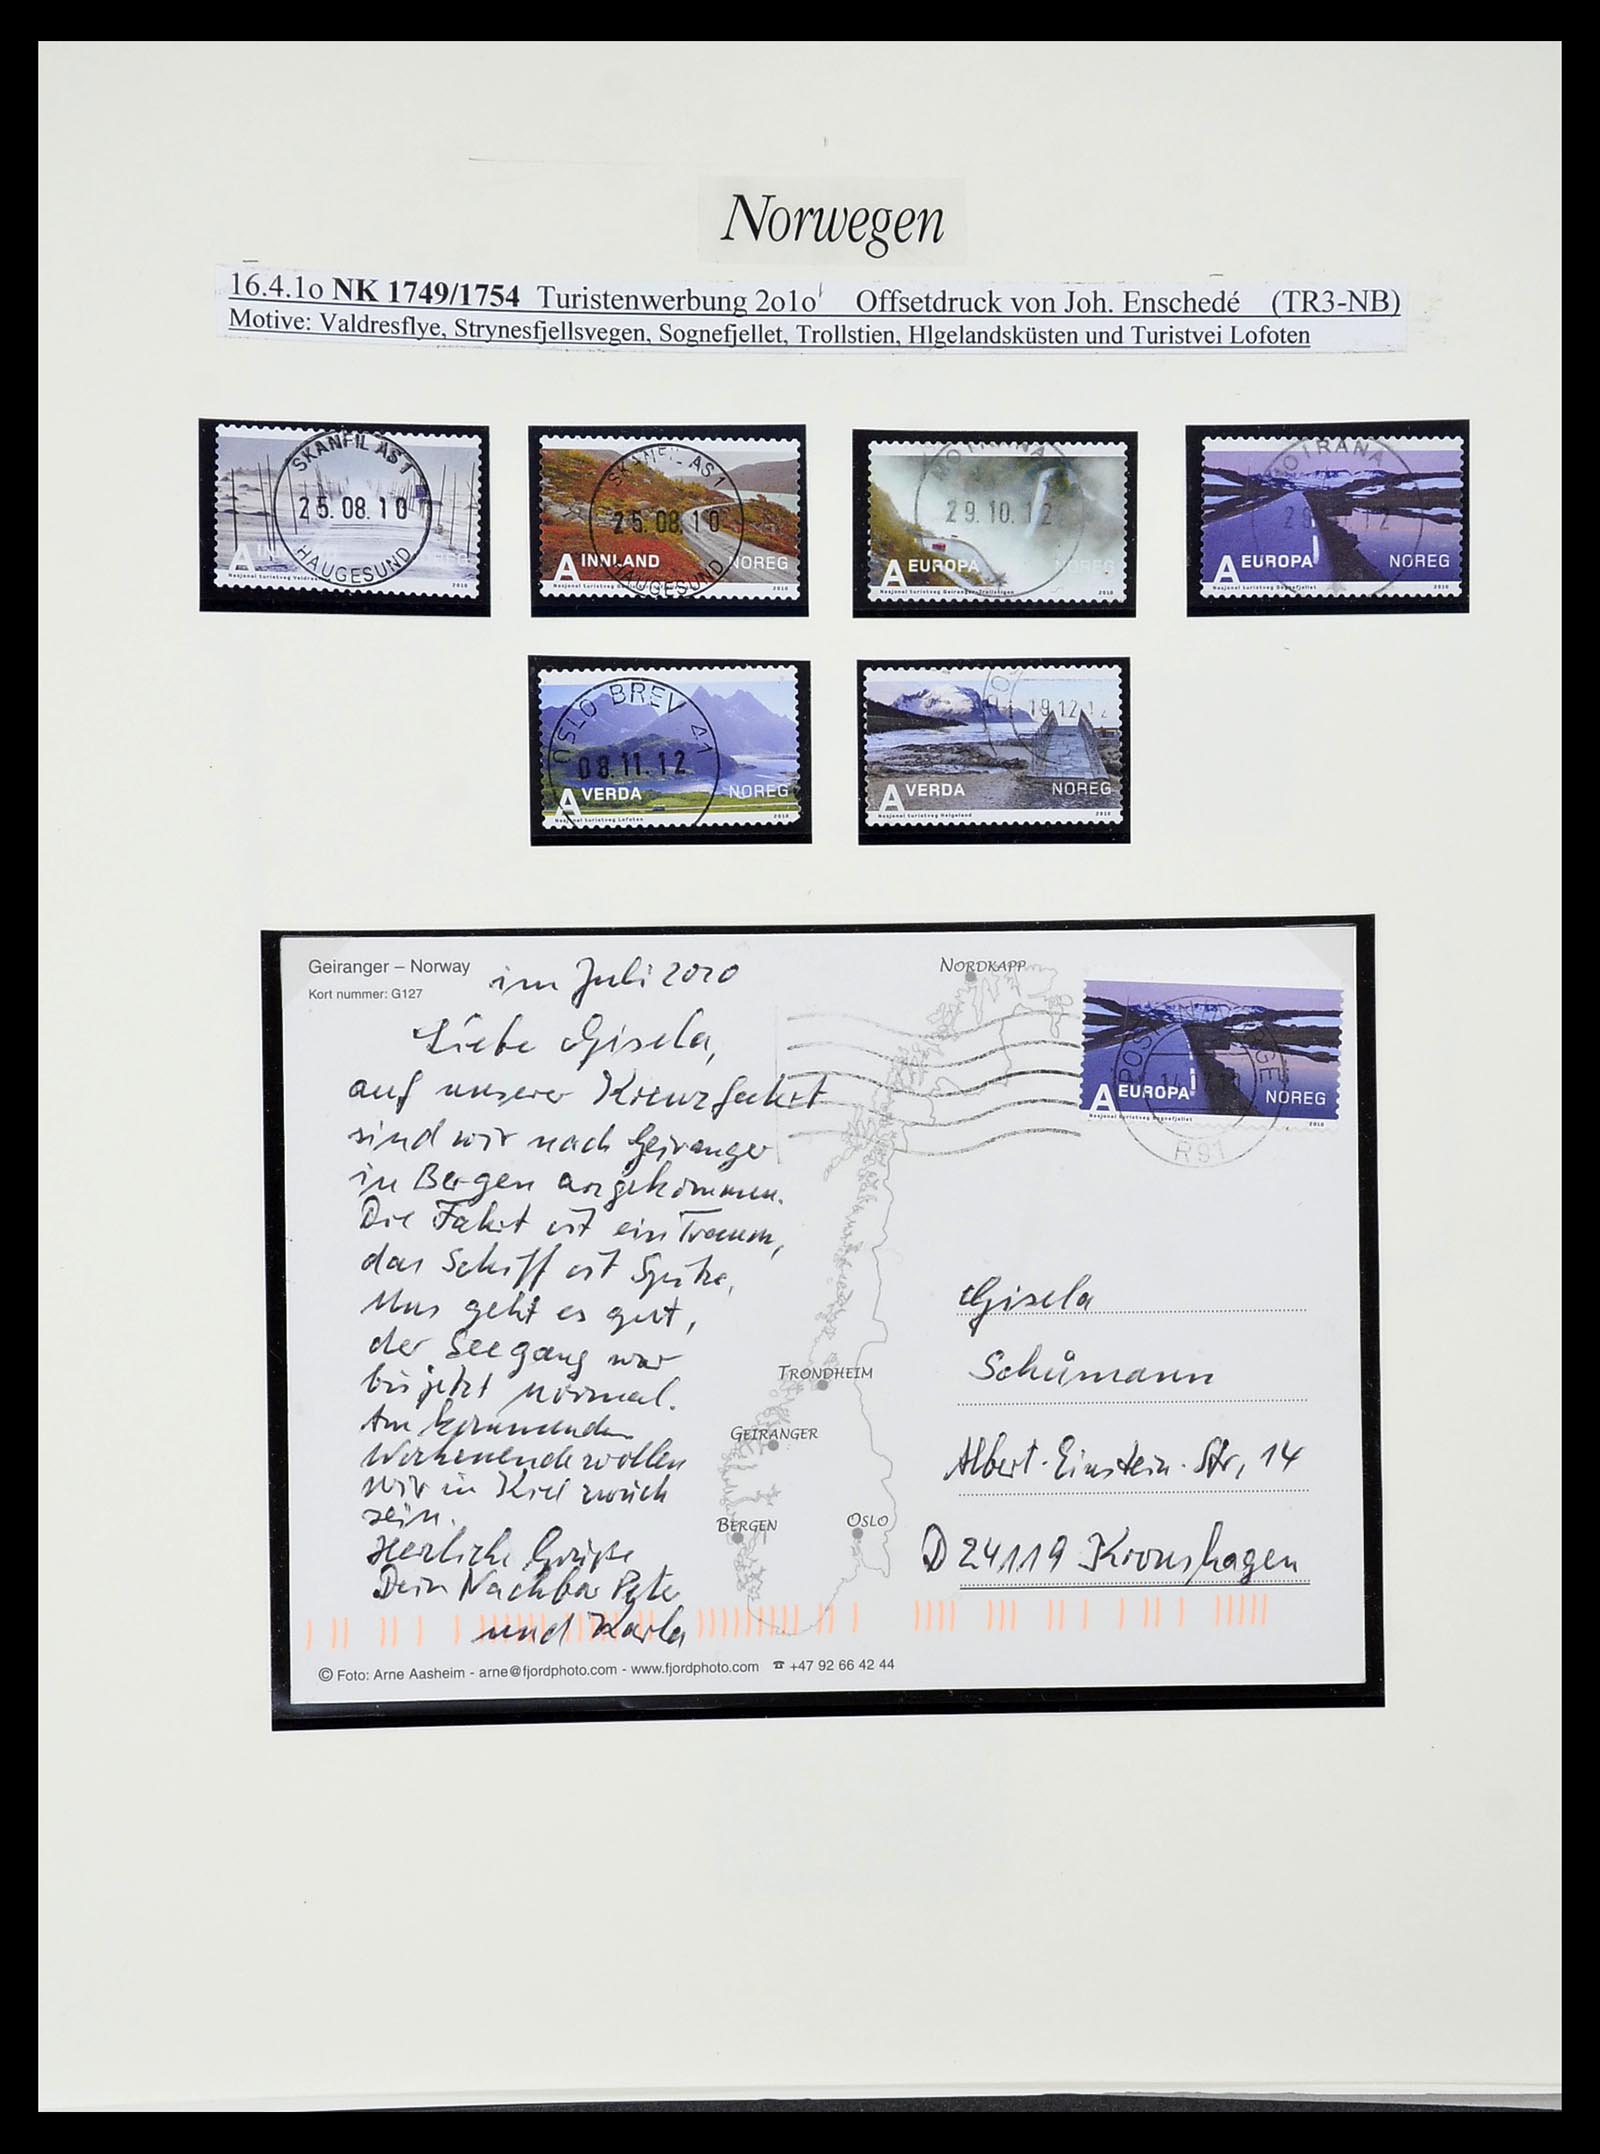 Norwegen
16.4.1o NK 1749/1754 Turistenwerbung 2o1o Offsetdruck von Joh. Enschedé (TR3-NB)
Motive: Valdresflye, Strynesfjellsvegen, Sognefjellet, Trollstien, Hlgelandsküsten und Turistvei Lofoten
SKANFIL AS 1
25.08.10
HAUGESUND
A
Nasjonal turistveg
2010
SKANFIL AS 1
25.08.10
HAUGESUND
A INNLAND NOREG
Nasjonal turistveg
2010
MO I RANA
29.10.12
A EUROPA
Nasjonal turistveg Geiranger-Trollstigen 2010
MO I RANA
A EUROPA NOREG
Nasjonal turistveg Sognefjellet 2010
OSLO BREV 41
08.11.12
A VERDA NOREG
Nasjonal turistveg Lofoten 2010
19.12.12
A VERDA NOREG
Nasjonal turistveg Helgeland 2010
Geiranger – Norway
Kort nummer: G127
im Juli 2010
Liebe Gisela,
auf unserer Kreuzfahrt
sind wir nach Geiranger
in Bergen angekommen.
Die Fahrt ist ein Traum,
das Schiff ist Spitze,
Uns geht es gut,
der Seegang war
bis jetzt normal.
Am kommenden
Wochenende wollen
wir in Kiel zurück
sein.
Herzliche Grüße
Dein Nachbar Peter
und Karla
NORDKAPP
TRONDHEIM
GEIRANGER
BERGEN
OSLO
A EUROPA NOREG
Nasjonal turistveg Sognefjellet 2010
R91
Gisela
Schümann
Albert-Einstein-Str, 14
D 24119 Kronshagen
© Foto: Arne Aasheim - arne@fjordphoto.com - www.fjordphoto.com ☎ +47 92 66 42 44